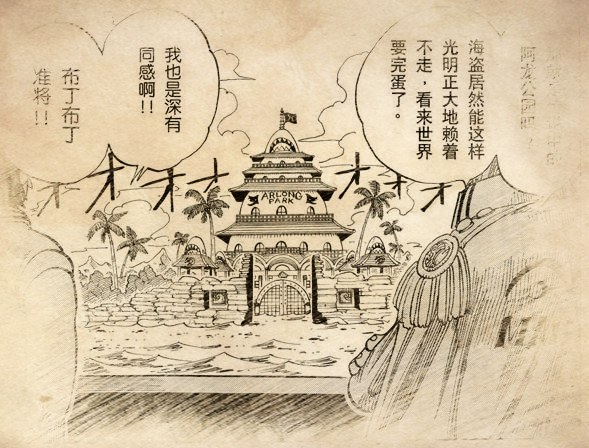 阿龙公园
海盗居然能这样
光明正大地赖着
不走，看来世界
要完蛋了。
我也是深有
同感啊!!
布丁布丁
准将!!
オオオオオオ
ARLONG
PARK